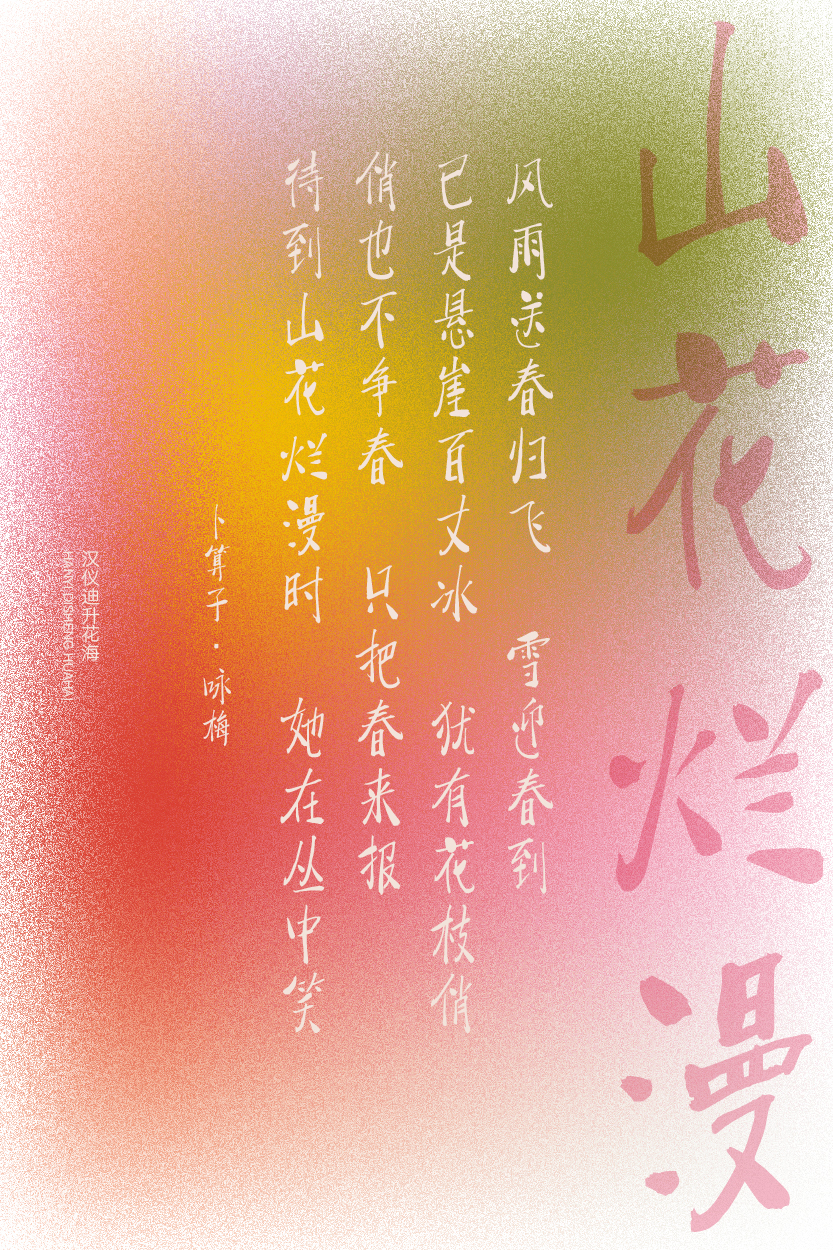 山花烂漫
风雨送春归飞 雪迎春到
已是悬崖百丈冰 犹有花枝俏
俏也不争春 只把春来报
待到山花烂漫时 她在丛中笑
卜算子·咏梅
汉仪迪升花海
HANYI DISHENG HUAHAI